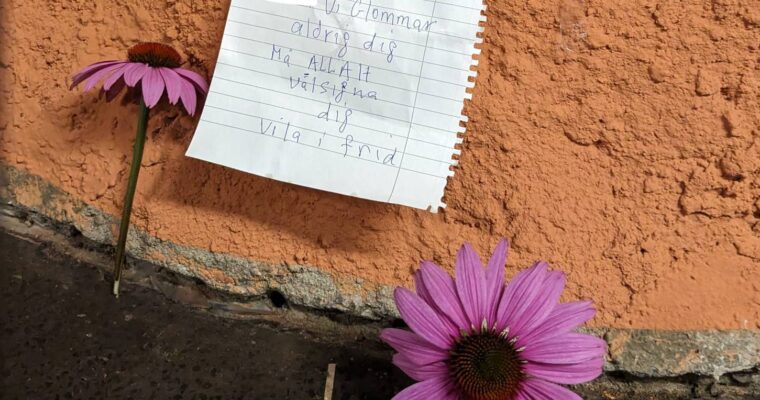 Vi Glömmar
aldrig dig
Må ALLAH
välsigna
dig
Vila i frid